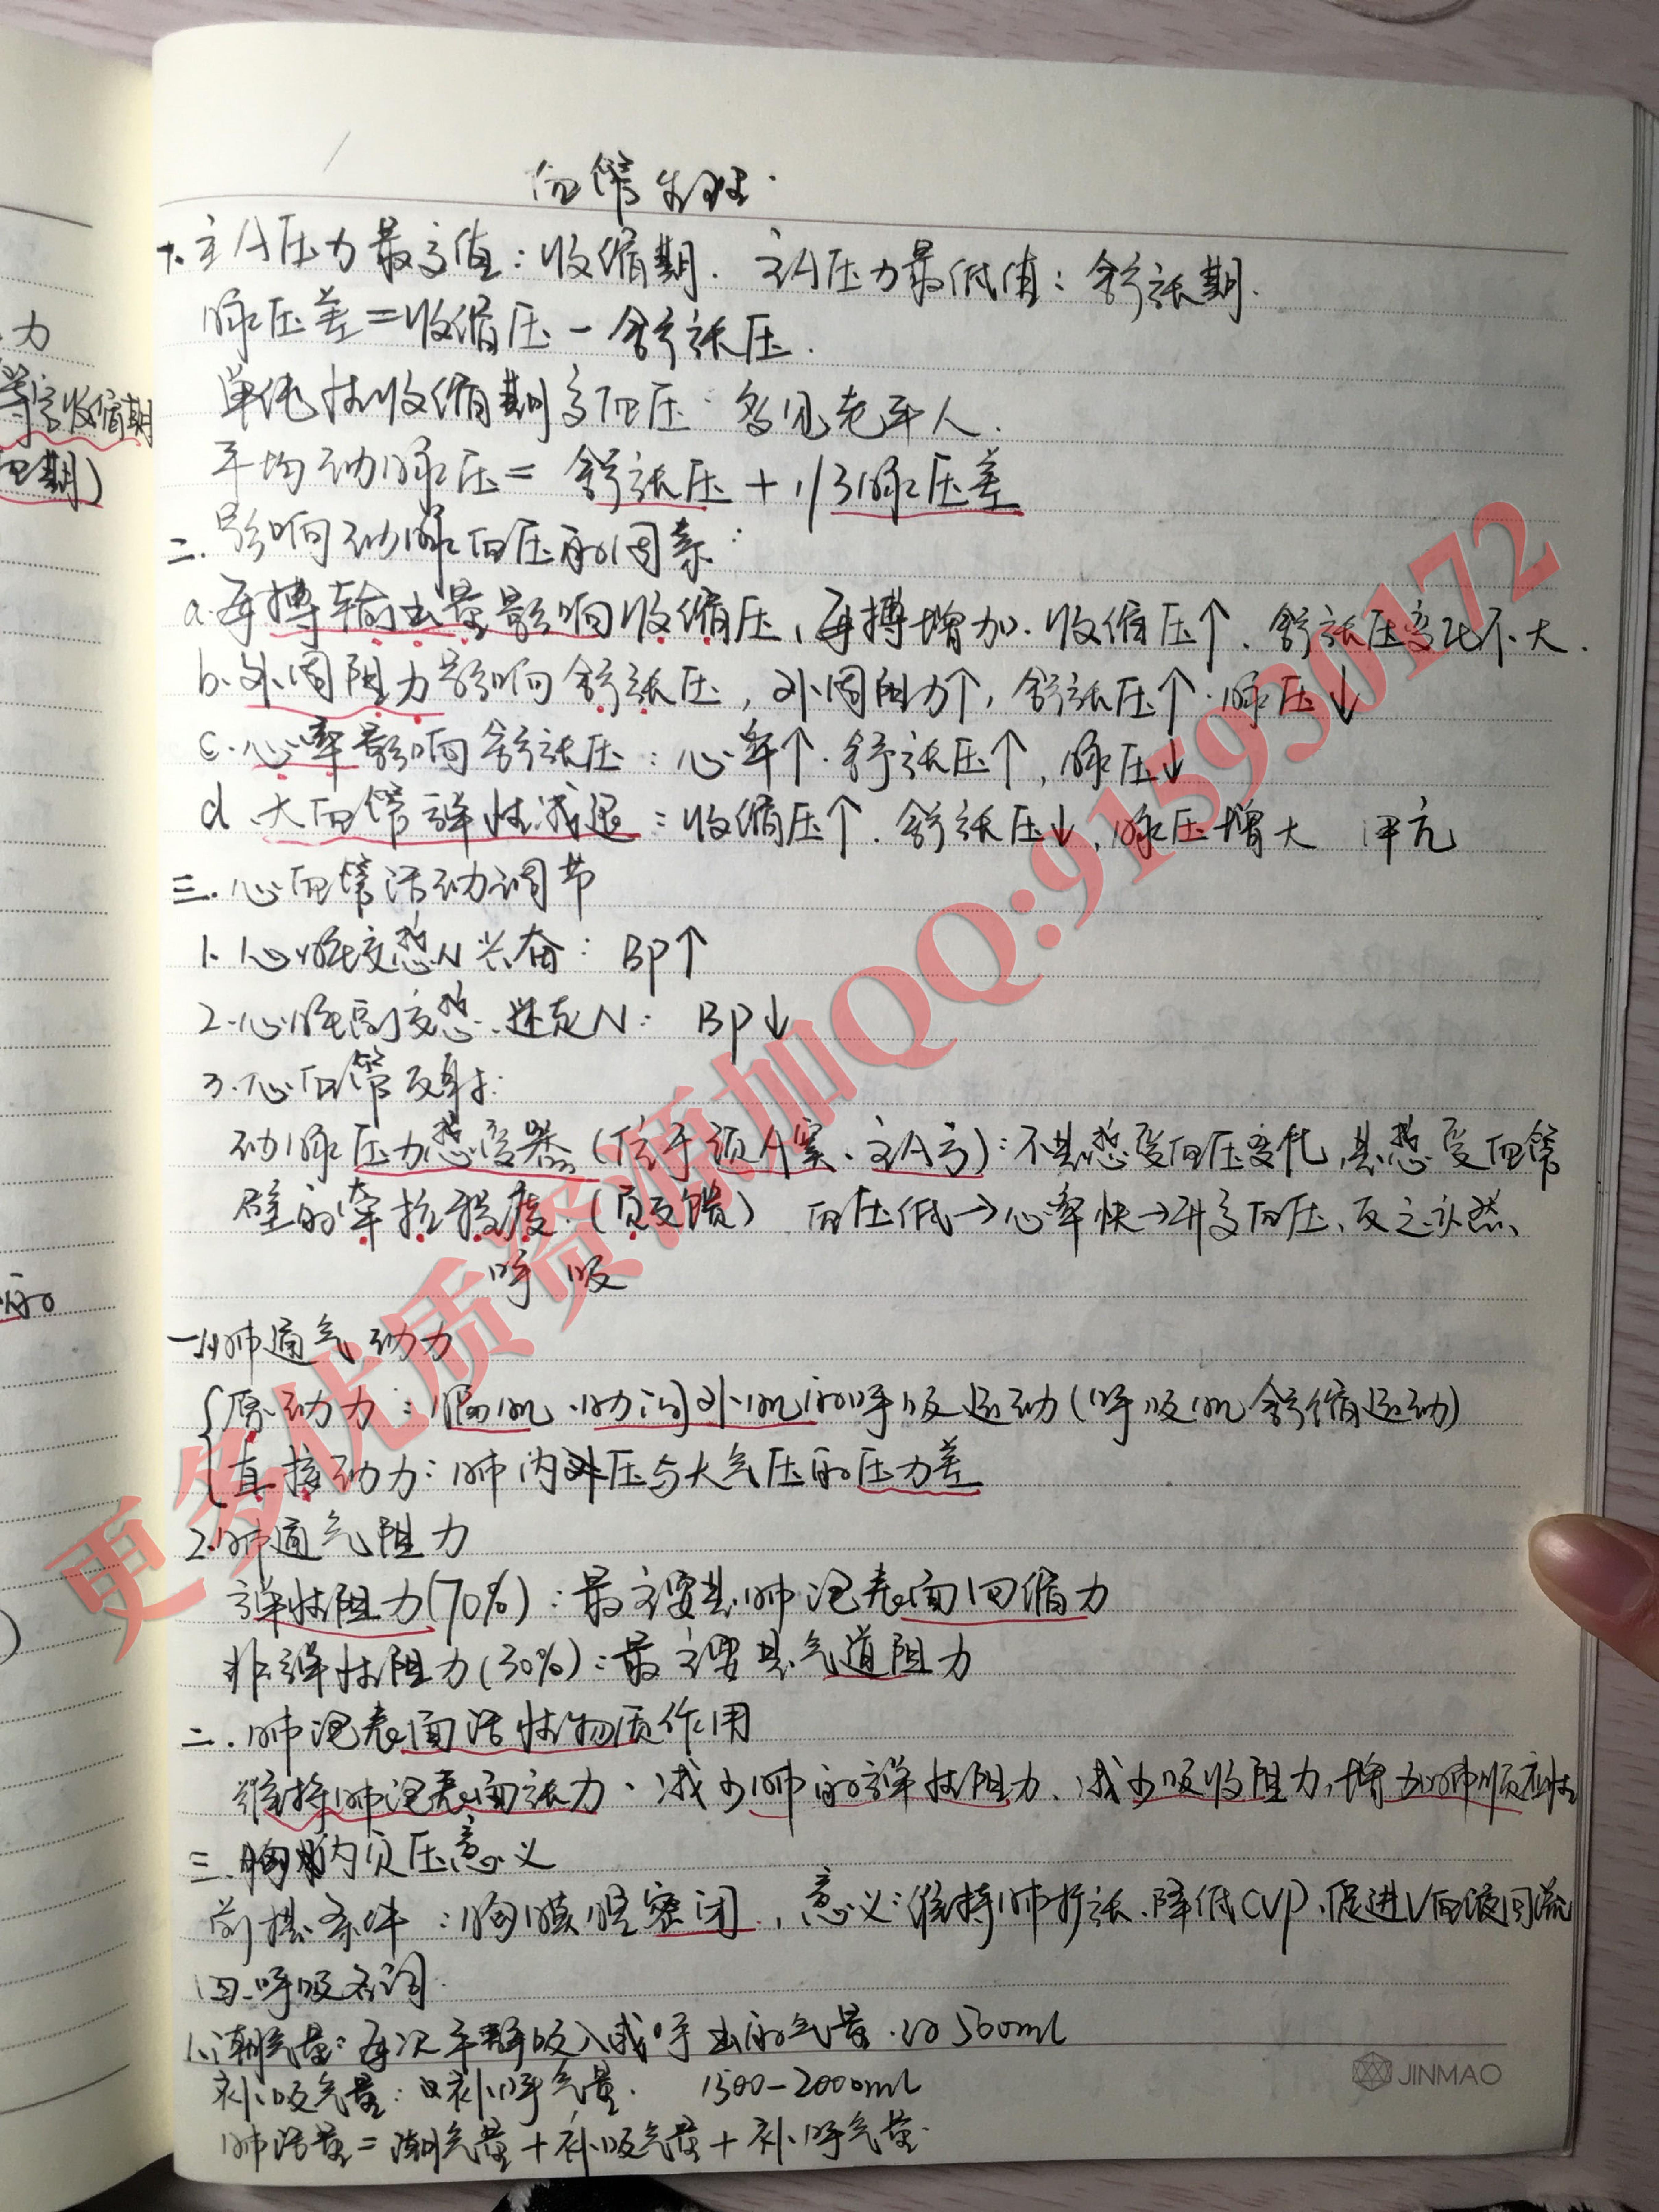 血管生理.
一.主A压力最高值:收缩期. 主A压力最低值:舒张期.
脉压差=收缩压-舒张压.
单纯性收缩期高血压:多见老年人.
平均动脉压=舒张压+1/3脉压差
二.影响动脉血压的因素:
a.每搏输出量影响收缩压,每搏增加.收缩压↑.舒张压变化不大.
b.外周阻力影响舒张压,外周阻力↑,舒张压↑.脉压↓
c.心率影响舒张压:心率↑.舒张压↑,脉压↓
d.大血管弹性减退:收缩压↑.舒张压↓,脉压增大 甲亢
三.心血管活动调节
1.心脏交感N兴奋: BP↑
2.心脏副交感.迷走N: BP↓
3.心血管反射:
动脉压力感受器(位于颈A窦、主A弓):不是感受血压变化,是感受血管
壁的牵拉程度.(负反馈) 血压低→心率快→升高血压、反之亦然、
呼吸
一.1.肺通气动力
原动力:膈肌、肋间外肌的呼吸运动(呼吸肌舒缩运动)
直接动力:肺内压与大气压的压力差
2.肺通气阻力
弹性阻力(70%):最主要是肺泡表面回缩力
非弹性阻力(30%):最主要是气道阻力
二.肺泡表面活性物质作用
维持肺泡表面张力、减少肺的弹性阻力、减少吸收阻力,增加肺顺应性
三.胸内负压意义
前提条件:胸膜腔密闭.,意义:维持肺扩张.降低CVP、促进V血液回流
四.呼吸名词.
1.潮气量:每次平静吸入或呼出的气量.约500ml
补吸气量:补呼气量. 1500-2000ml
肺活量=潮气量+补吸气量+补呼气量.
力
等容收缩期
期)
的
)
更多优质资源加QQ:915930172
JINMAO